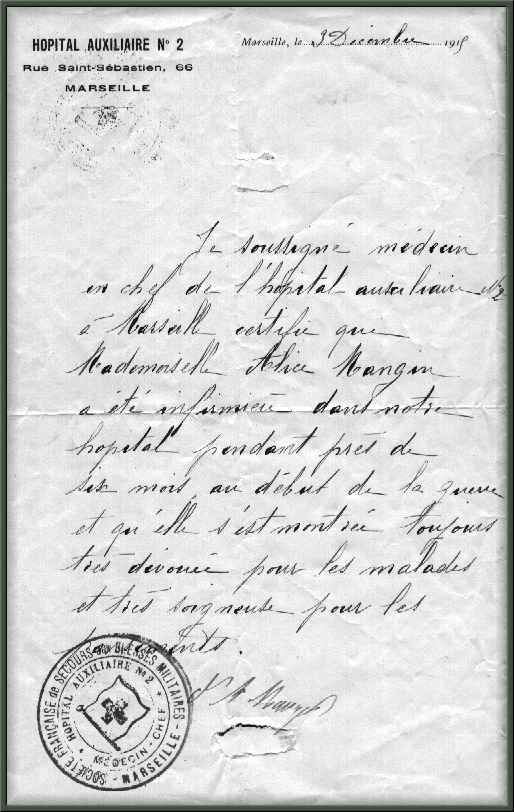 HOPITAL AUXILIAIRE N° 2
Rue Saint-Sébastien, 66
MARSEILLE
Marseille, le 3 Décembre 1915
Je soussigné médecin
en chef de l'hôpital auxiliaire N° 2
à Marseille certifie que
Mademoiselle Alice Mangin
a été infirmière dans notre
hopital pendant près de
six mois au début de la guerre
et qu'elle s'est montrée toujours
très dévouée pour les malades
et très soigneuse pour les
SOCIÉTÉ FRANÇAISE de SECOURS aux BLESSÉS MILITAIRES
HOPITAL AUXILIAIRE N° 2
MÉDECIN-CHEF
MARSEILLE